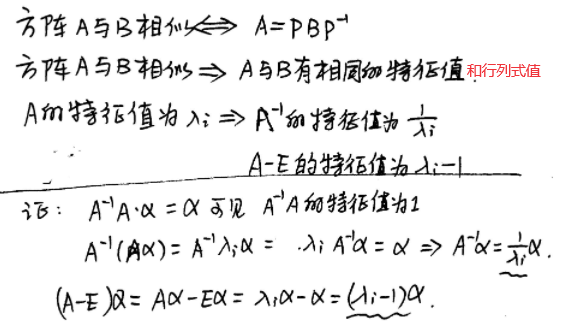 方阵A与B相似⇔ A=PBP⁻¹
方阵A与B相似⇒ A与B有相同的特征值.和行列式值
A的特征值为λi ⇒ A⁻¹的特征值为 1/λi
A-E的特征值为λi-1
证: A⁻¹A·α = α 可见 A⁻¹A的特征值为1
A⁻¹(Aα) = A⁻¹λiα = λiA⁻¹α = α ⇒ A⁻¹α = 1/λi α.
(A-E)α = Aα-Eα = λiα-α = (λi-1)α.